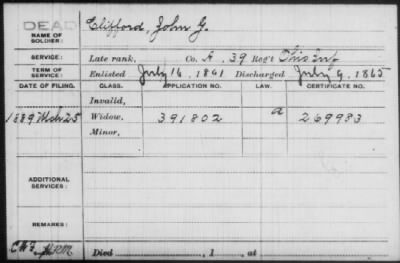 DEAD
NAME OF SOLDIER: Clifford, John G.
SERVICE: Late rank, Co. A, 39 Reg't Ohio Inf
TERM OF SERVICE: Enlisted July 16, 1861 Discharged July 9, 1865
DATE OF FILING. CLASS. APPLICATION NO. LAW. CERTIFICATE NO.
Invalid,
1889 Mch 25 Widow, 391802 a 269983
Minor,
ADDITIONAL SERVICES:
REMARKS:
Died , 1 , at